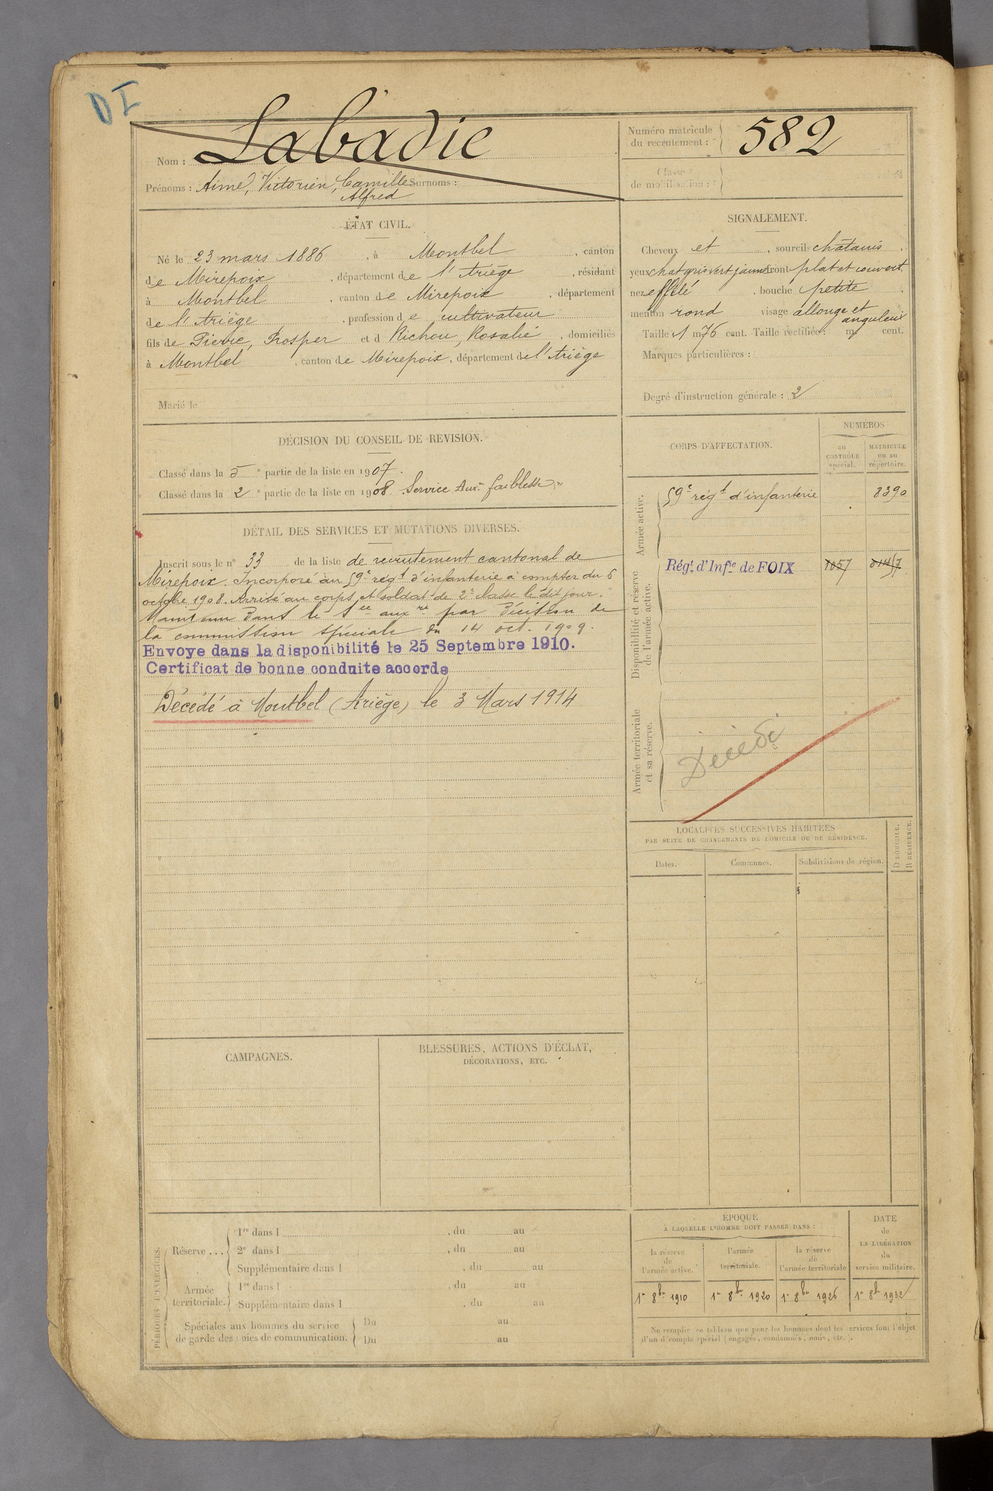 DI
Nom : Labadie
Prénoms : Aimé, Victorien, Camille Surnoms :
Alfred
Numéro matricule
du recrutement : 582
Classe
de mobilisation :
ÉTAT CIVIL.
Né le 23 mars 1886 , à Montbel , canton
de Mirepoix , département de l'Ariège , résidant
à Montbel , canton de Mirepoix , département
de l'Ariège , profession de cultivateur
fils de Pierre, Prosper et d Richou, Rosalie , domiciliés
à Montbel , canton de Mirepoix , département de l'Ariège
Marié le
SIGNALEMENT.
Cheveux et , sourcils châtains .
yeux chat gris vert jaune front plat et couvert
nez effilé , bouche petite ,
menton rond visage allongé et
anguleux
Taille 1 m 76 cent. Taille rectifiée : m cent.
Marques particulières :
Degré d'instruction générale : 2
DÉCISION DU CONSEIL DE REVISION.
Classé dans la 5 e partie de la liste en 1907.
Classé dans la 2 e partie de la liste en 1908. Service Aux. faiblesse
CORPS D'AFFECTATION.
NUMÉROS
au
CONTRÔLE
spécial.
MATRICULE
ou au
répertoire.
Armée active.
59e régt d'infanterie 8390
Disponibilité et réserve
de l'armée active.
Régt d'Infie de FOIX 1057
Armée territoriale
et sa réserve.
Décédé
DÉTAIL DES SERVICES ET MUTATIONS DIVERSES.
Inscrit sous le n° 33 de la liste de recrutement cantonal de
Mirepoix. Incorporé au 59e régt d'infanterie à compter du 6
octobre 1908. Arrivé au corps et soldat de 2e classe le dit jour.
Maintenu dans le Sce auxre par décision de
la commission spéciale du 14 oct. 1909.
Envoye dans la disponibilité le 25 Septembre 1910.
Certificat de bonne conduite accorde
Décédé à Montbel (Ariège) le 3 Mars 1914
LOCALITÉS SUCCESSIVES HABITÉES
PAR SUITE DE CHANGEMENTS DE DOMICILE OU DE RÉSIDENCE.
Dates.
Communes.
Subdivisions de région.
D. DOMICILE.
R. RÉSIDENCE.
CAMPAGNES.
BLESSURES, ACTIONS D'ÉCLAT,
DÉCORATIONS, ETC.
PÉRIODES D'EXERCICES.
Réserve ...
1re dans l , du au
2e dans l , du au
Supplémentaire dans l , du au
Armée
territoriale.
1re dans l , du au
Supplémentaire dans l , du au
Spéciales aux hommes du service
de garde des voies de communication.
Du au
Du au
ÉPOQUE
À LAQUELLE L'HOMME DOIT PASSER DANS :
la réserve
de
l'armée active.
l'armée
territoriale.
la réserve
de
l'armée territoriale
DATE
de
LA LIBÉRATION
du
service militaire.
1er 8bre 1910
1er 8bre 1920
1er 8bre 1926
1er 8bre 1932
Ne remplir ce tableau que pour les hommes dont les services font l'objet
d'un décompte spécial (engagés, condamnés, omis, etc.).